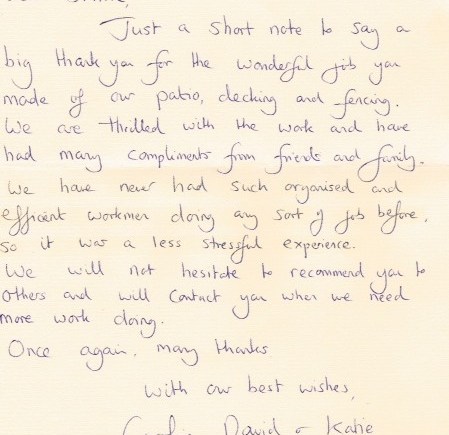 Just a short note to say a
big thank you for the wonderful job you
made of our patio, decking and fencing.
We are thrilled with the work and have
had many compliments from friends and family.
We have never had such organised and
efficient workmen doing any sort of job before,
so it was a less stressful experience.
We will not hesitate to recommend you to
others and will contact you when we need
more work doing.
Once again, many thanks
with our best wishes,
David & Katie